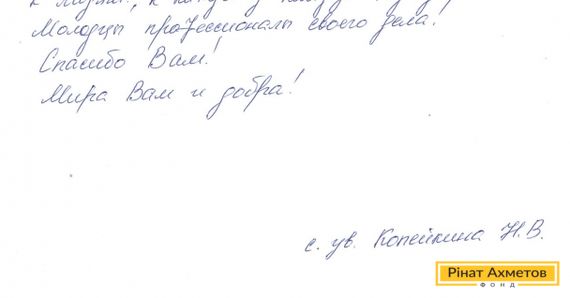 Молодцы профессионалы своего дела!
Спасибо Вам!
Мира Вам и добра!
с. ув. Копейкина Н.В.
Рінат Ахметов
ФОНД